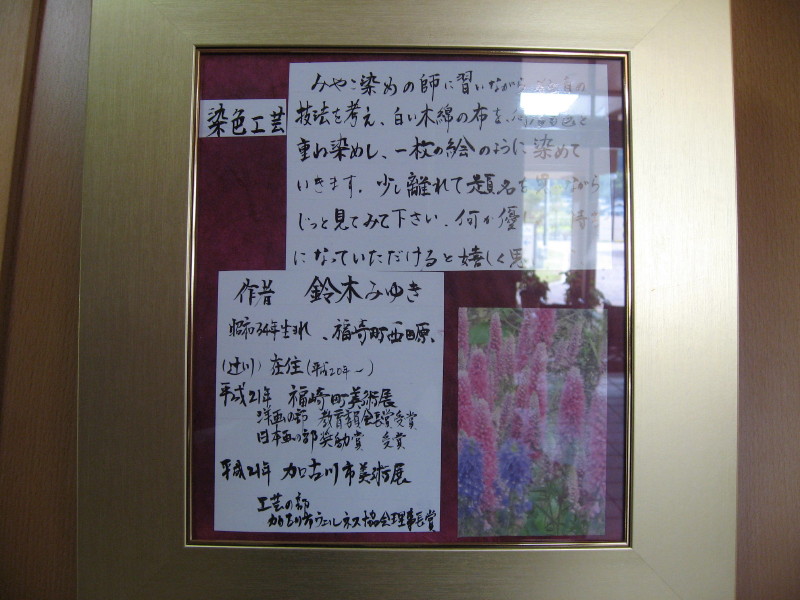 染色工芸
みやこ染めの師に習いながら
技法を考え、白い木綿の布を、
重ね染めし、一枚の絵のように染めて
いきます。少し離れて題名を
じっと見てみて下さい。何か優
になっていただけると嬉しく思
作者 鈴木みゆき
昭和34年生まれ、福崎町西田原、
(辻川)在住(平成20年〜)
平成21年 福崎町美術展
洋画の部 教育委員会長賞受賞
日本画の部奨励賞 受賞
平成21年 加古川市美術展
工芸の部
加古川市ウェルネス協会理事長賞